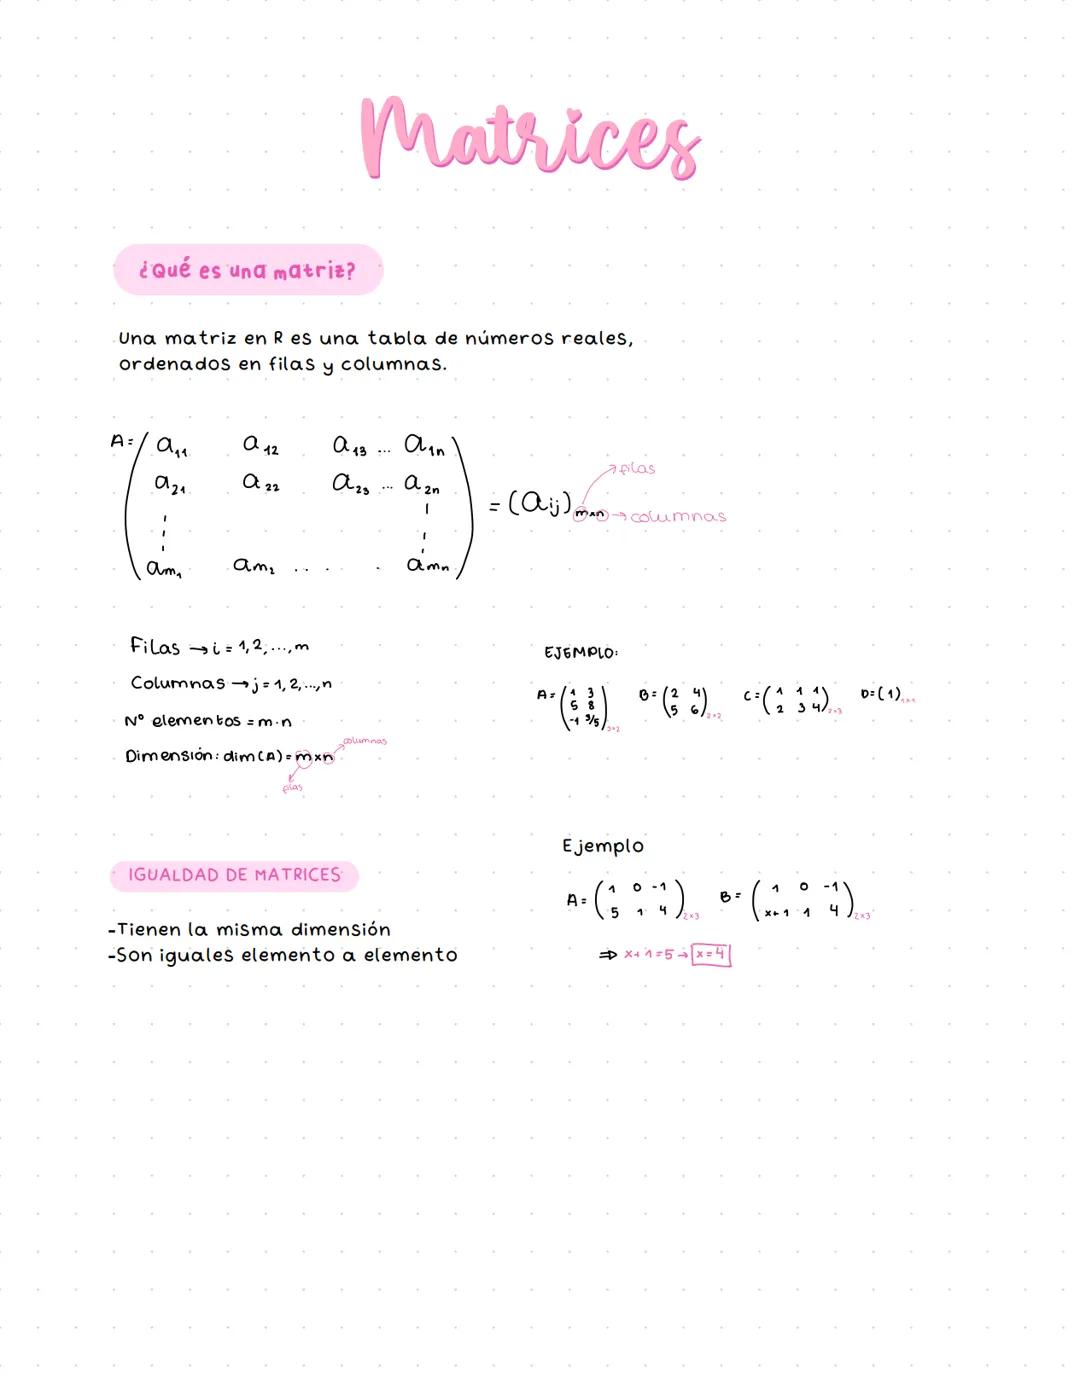 Matrices
¿Qué es una matriz?
Una matriz en R es una tabla de números reales,
ordenados en filas y columnas.
A = ( a₁₁ a₁₂ a₁₃ ... a₁ₙ
a₂₁ a₂₂ a₂₃ ... a₂ₙ
am₁ am₂ .. . . amₙ ) = (aij) m×n → columnas
filas
Filas → i = 1, 2, ..., m
Columnas → j = 1, 2, ..., n
Nº elementos = m · n
Dimensión: dim(A) = m×n
columnas
filas
EJEMPLO:
A = ( 1 3
5 8
-1 3/5 ) 3×2
B = ( 2 4
5 6 ) 2×2
C = ( 1 1 1
2 3 4 ) 2×3
D = (1) 1×1
IGUALDAD DE MATRICES
-Tienen la misma dimensión
-Son iguales elemento a elemento
Ejemplo
A = ( 1 0 -1
5 1 4 ) 2×3
B = ( 1 0 -1
x+1 1 4 ) 2×3
⇒ x+1=5 → x=4